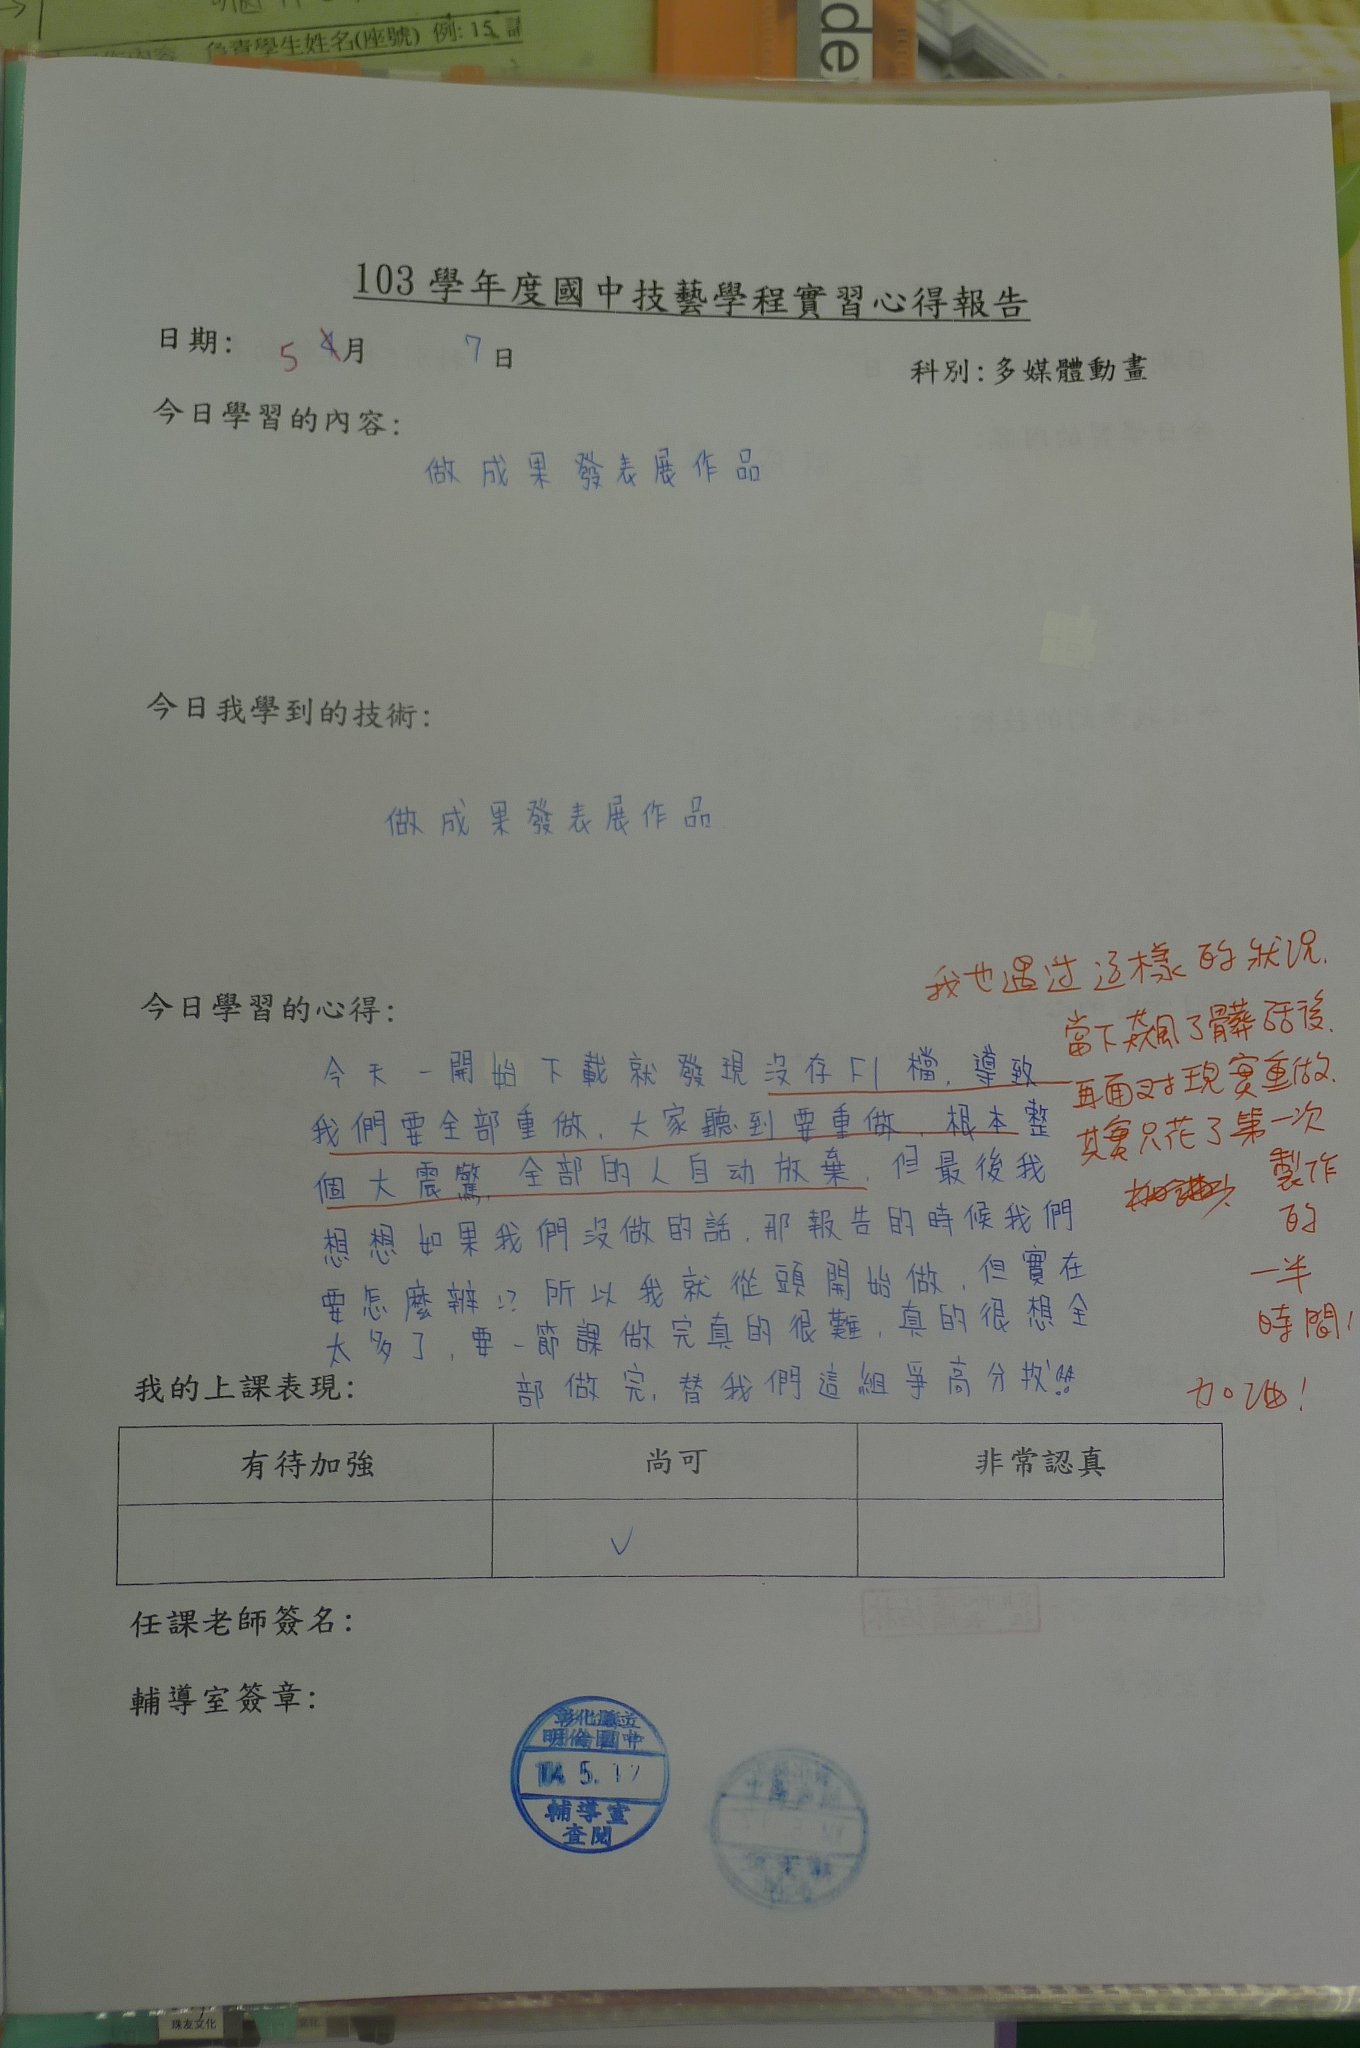 負責學生姓名(座號) 例: 15.
de
103 學年度國中技藝學程實習心得報告
日期: 5 月 7 日
科別: 多媒體動畫
今日學習的內容:
做成果發表展作品
今日我學到的技術:
做成果發表展作品
今日學習的心得:
今天一開始下載就發現沒存Fl檔,導致
我們要全部重做,大家聽到要重做,根本整
個大震驚,全部的人自动放棄,但最後我
想想如果我們沒做的話,那報告的時候我們
要怎麼辦!?所以我就從頭開始做,但實在
太多了,要一節課做完真的很難,真的很想全
部做完,替我們這組爭高分數!!
我也遇过这樣的狀況.
當下飆了髒話後.
再面对現實重做.
其實只花了第一次
製作
的
一半
時間!
加油!
我的上課表現:
有待加強 尚可 非常認真
✓
任課老師簽名:
輔導室簽章:
彰化縣立
明倫國中
104. 5. 12
輔導室
查閱
珠友文化